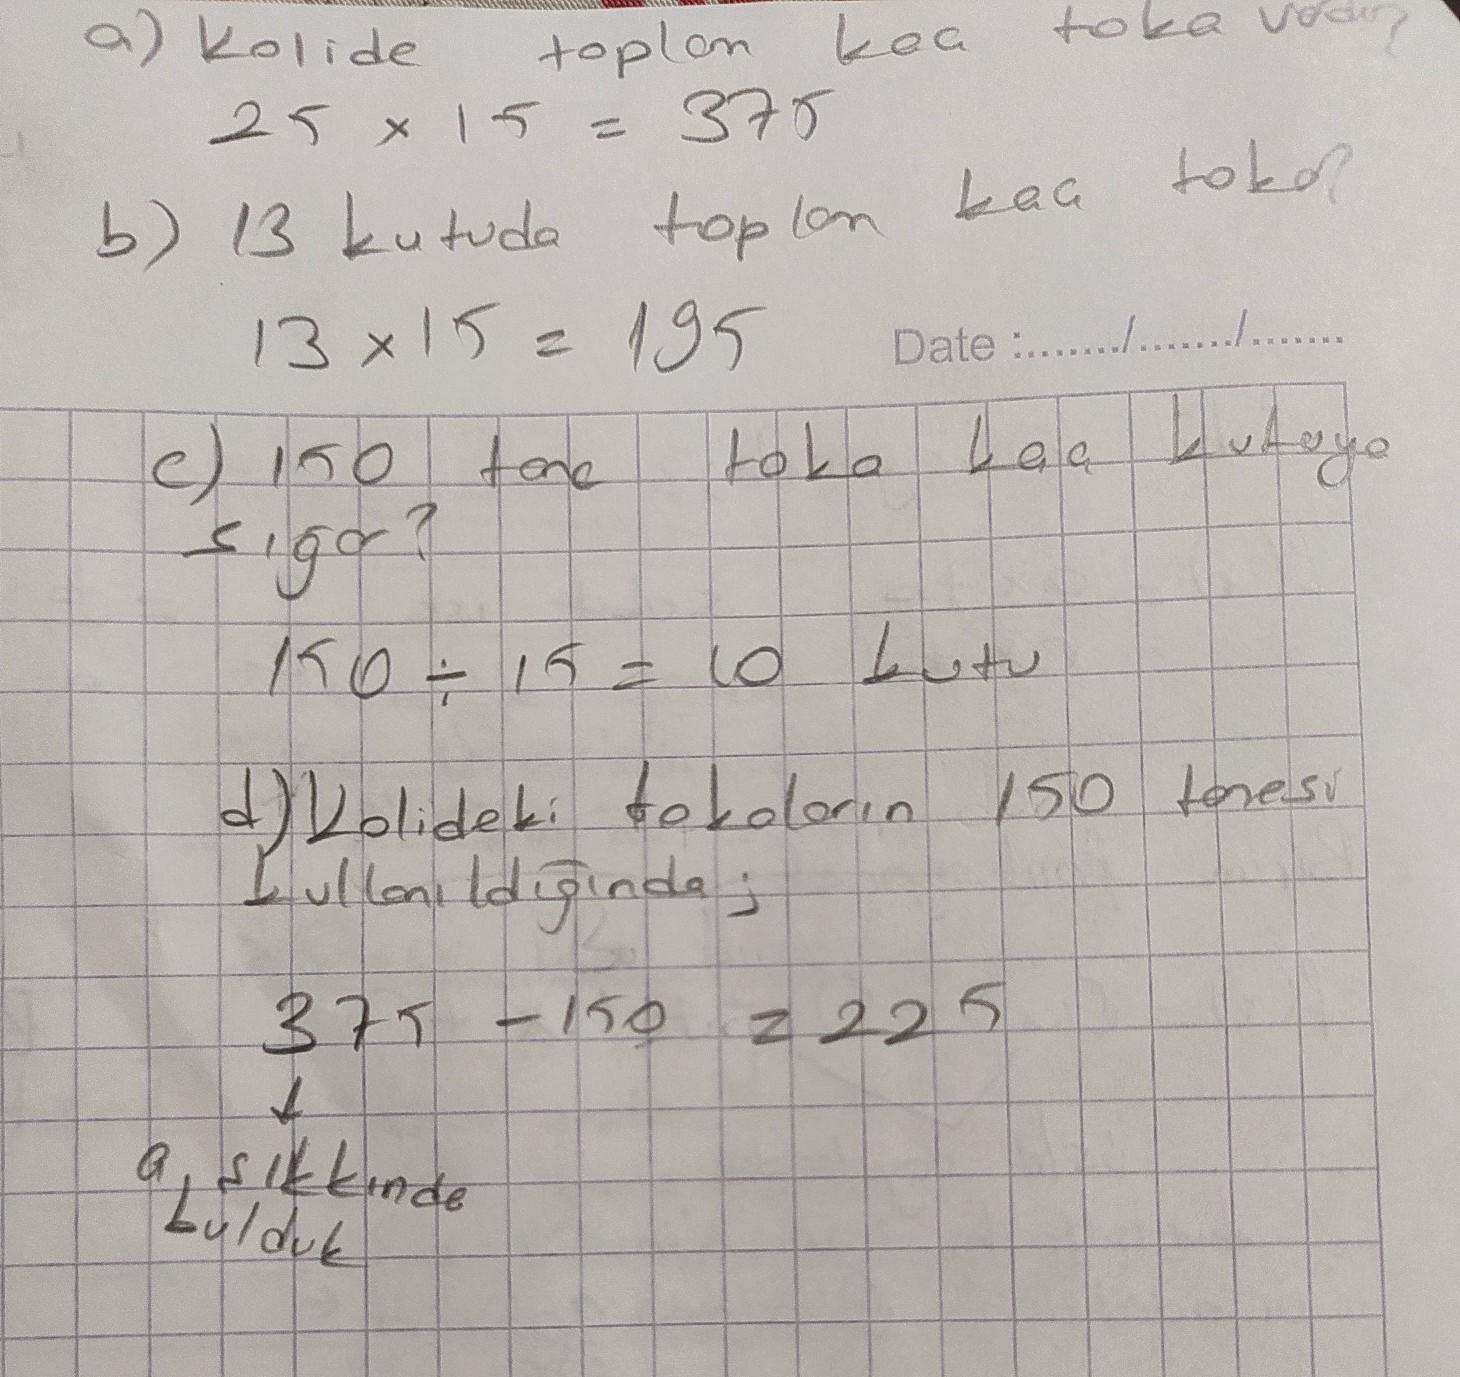 a) Kolide toplam kaç toka vardır?
25 x 15 = 375
b) 13 kutuda toplam kaç toka?
13 x 15 = 195
Date :......../......../........
c) 150 tane toka kaç kutuya
sığar?
150 ÷ 15 = 10 kutu
d) Kolideki tokaların 150 tanesi
kullanıldığında;
375 - 150 = 225
↓
a şıkkında
bulduk